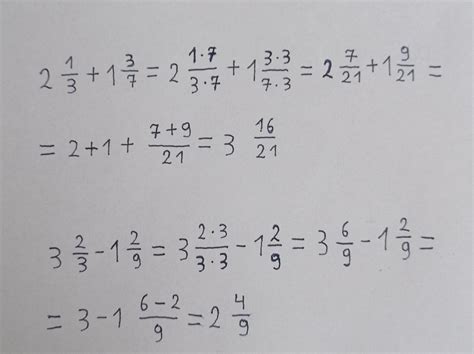 2 1/3 + 1 3/7 = 2 1·7/3·7 + 1 3·3/7·3 = 2 7/21 + 1 9/21 =
= 2+1 + 7+9/21 = 3 16/21
3 2/3 - 1 2/9 = 3 2·3/3·3 - 1 2/9 = 3 6/9 - 1 2/9 =
= 3-1 6-2/9 = 2 4/9